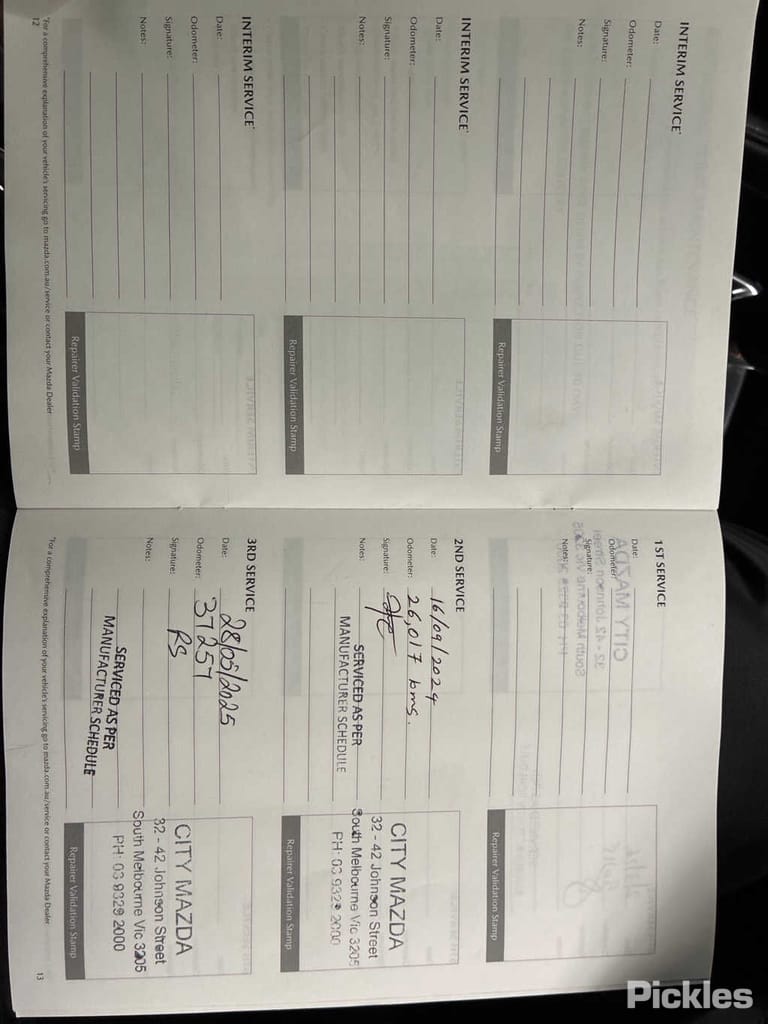 INTERIM SERVICE*
Date:
Odometer:
Signature:
Notes:
Repairer Validation Stamp
INTERIM SERVICE*
Date:
Odometer:
Signature:
Notes:
Repairer Validation Stamp
INTERIM SERVICE*
Date:
Odometer:
Signature:
Notes:
Repairer Validation Stamp
*For a comprehensive explanation of your vehicle's servicing go to mazda.com.au/service or contact your Mazda Dealer
12
1ST SERVICE
Date:
Odometer:
Signature:
Notes:
Repairer Validation Stamp
2ND SERVICE
Date: 16/09/2024
Odometer: 26,017 kms.
Signature:
Notes:
SERVICED AS PER
MANUFACTURER SCHEDULE
CITY MAZDA
32 - 42 Johnson Street
South Melbourne Vic 3205
PH: 03 9329 2000
Repairer Validation Stamp
3RD SERVICE
Date: 28/05/2025
Odometer: 37257
Signature: RS
Notes:
SERVICED AS PER
MANUFACTURER SCHEDULE
CITY MAZDA
32 - 42 Johnson Street
South Melbourne Vic 3205
PH: 03 9329 2000
Repairer Validation Stamp
*For a comprehensive explanation of your vehicle's servicing go to mazda.com.au/service or contact your Mazda Dealer
13
Pickles